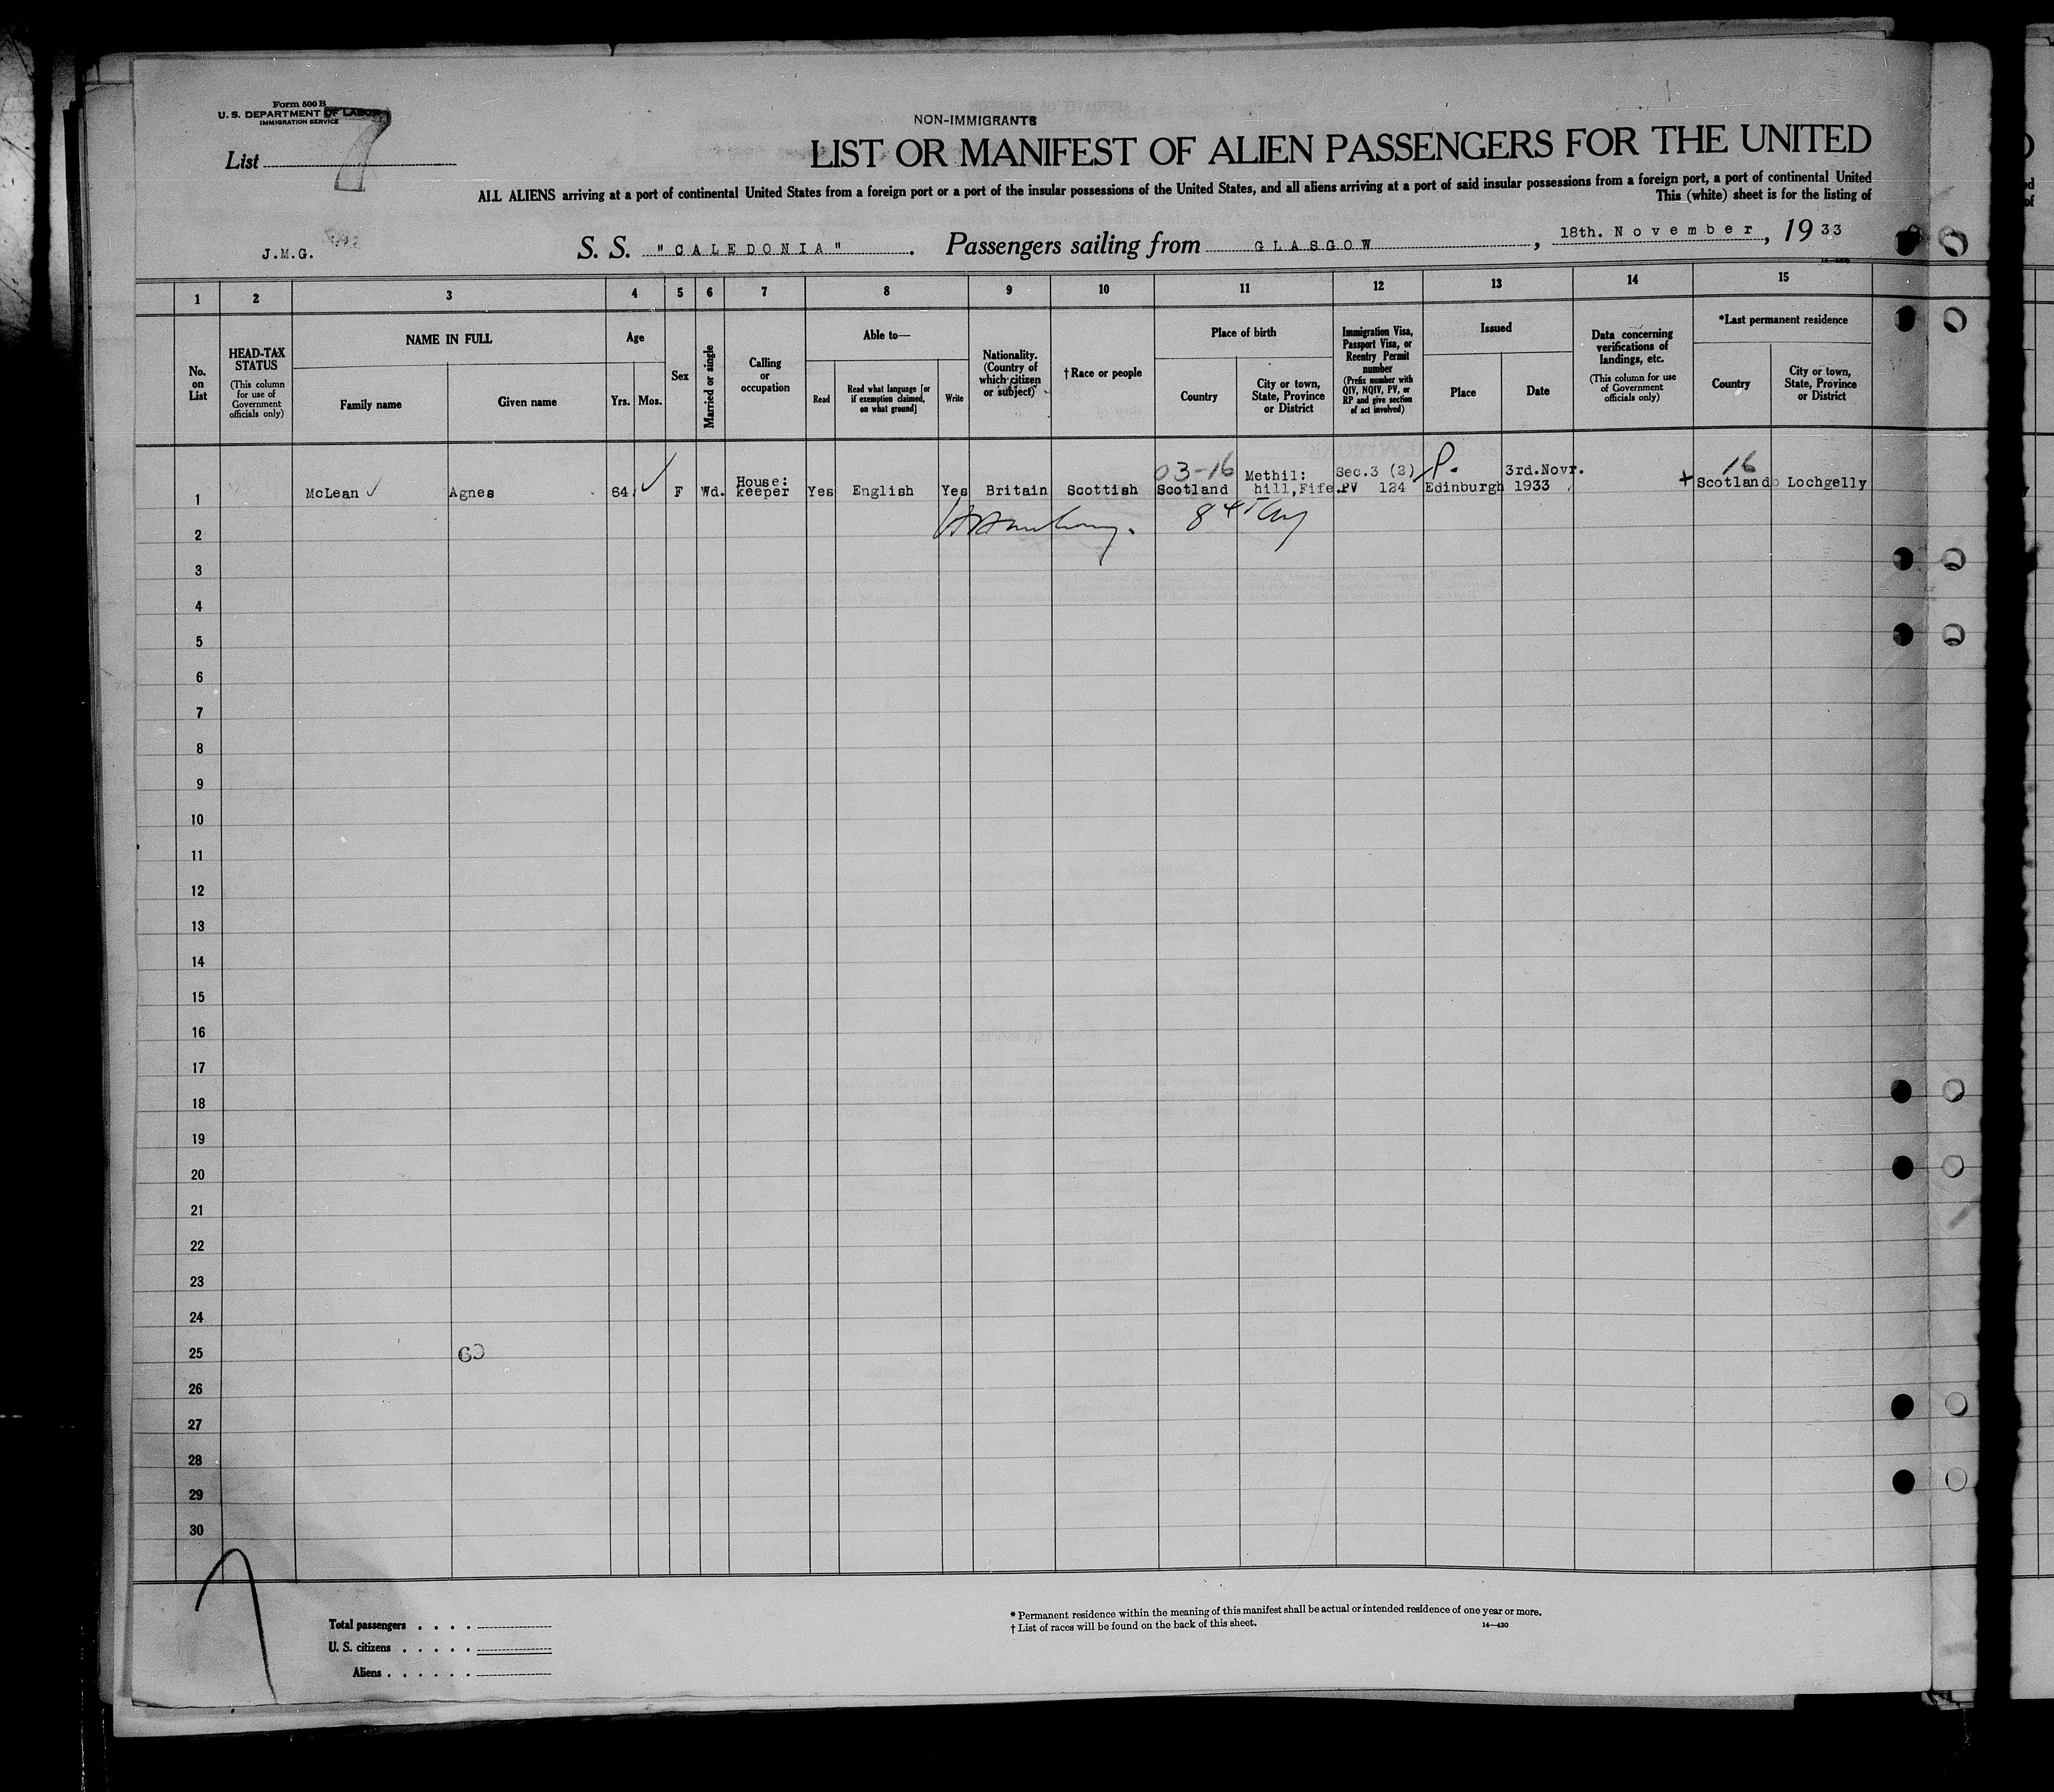 Form 500 B
U. S. DEPARTMENT OF LABOR
IMMIGRATION SERVICE
List 7
NON-IMMIGRANTS
LIST OR MANIFEST OF ALIEN PASSENGERS FOR THE UNITED
ALL ALIENS arriving at a port of continental United States from a foreign port or a port of the insular possessions of the United States, and all aliens arriving at a port of said insular possessions from a foreign port, a port of continental United
This (white) sheet is for the listing of
J.M.G.
S. S. "CALEDONIA". Passengers sailing from GLASGOW, 18th. November, 1933
1 2 3 4 5 6 7 8 9 10 11 12 13 14 15
No. on List
HEAD-TAX STATUS
(This column for use of Government officials only)
NAME IN FULL
Family name
Given name
Age
Yrs. Mos.
Sex
Married or single
Calling or occupation
Able to—
Read
Read what language [or if exemption claimed, on what ground]
Write
Nationality. (Country of which citizen or subject)
† Race or people
Place of birth
Country
City or town, State, Province or District
Immigration Visa, Passport Visa, or Reentry Permit number
(Prefix number with QIV, NQIV, PV, or RP and give section of act involved)
Issued
Place
Date
Data concerning verifications of landings, etc.
(This column for use of Government officials only)
*Last permanent residence
Country
City or town, State, Province or District
03-16 P. 16
House: Methil: Sec.3 (2) 3rd.Novr.
1 McLean Agnes 64 F Wd. keeper Yes English Yes Britain Scottish Scotland hill,Fife. PV 124 Edinburgh 1933 Scotland Lochgelly
2
3
4
5
6
7
8
9
10
11
12
13
14
15
16
17
18
19
20
21
22
23
24
25
26
27
28
29
30
Total passengers
U. S. citizens
Aliens
* Permanent residence within the meaning of this manifest shall be actual or intended residence of one year or more.
† List of races will be found on the back of this sheet.
14—430